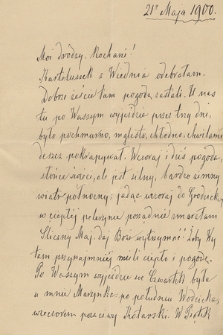 21º Maja 1900.
Moi drodzy, Kochani!
Karteluszek z Wiednia odebrałam.
Dobrze żeście tam pogodę zastali. U nas
tu po Waszym wyjeździe przez trzy dni,
było pochmurno, mgliste, chłodno, chwilami
deszcz pokrapywał. Wczoraj i dziś pogoda
słońce świeci, ale jest silny, bardzo zimny
wiatr północny; jadąc wczoraj do Grodziska
w ciepłej pelerynie porządnie zmarzłam
Śliczny Maj, daj Boże wytrzymać żeby Wy
tam przynajmniej mieli ciepło i pogodę.
Po Waszym wyjeździe we Czwartek była
u mnie Marynka, po południu Wodzicka,
wieczorem panowy Kotarski. W Piątek